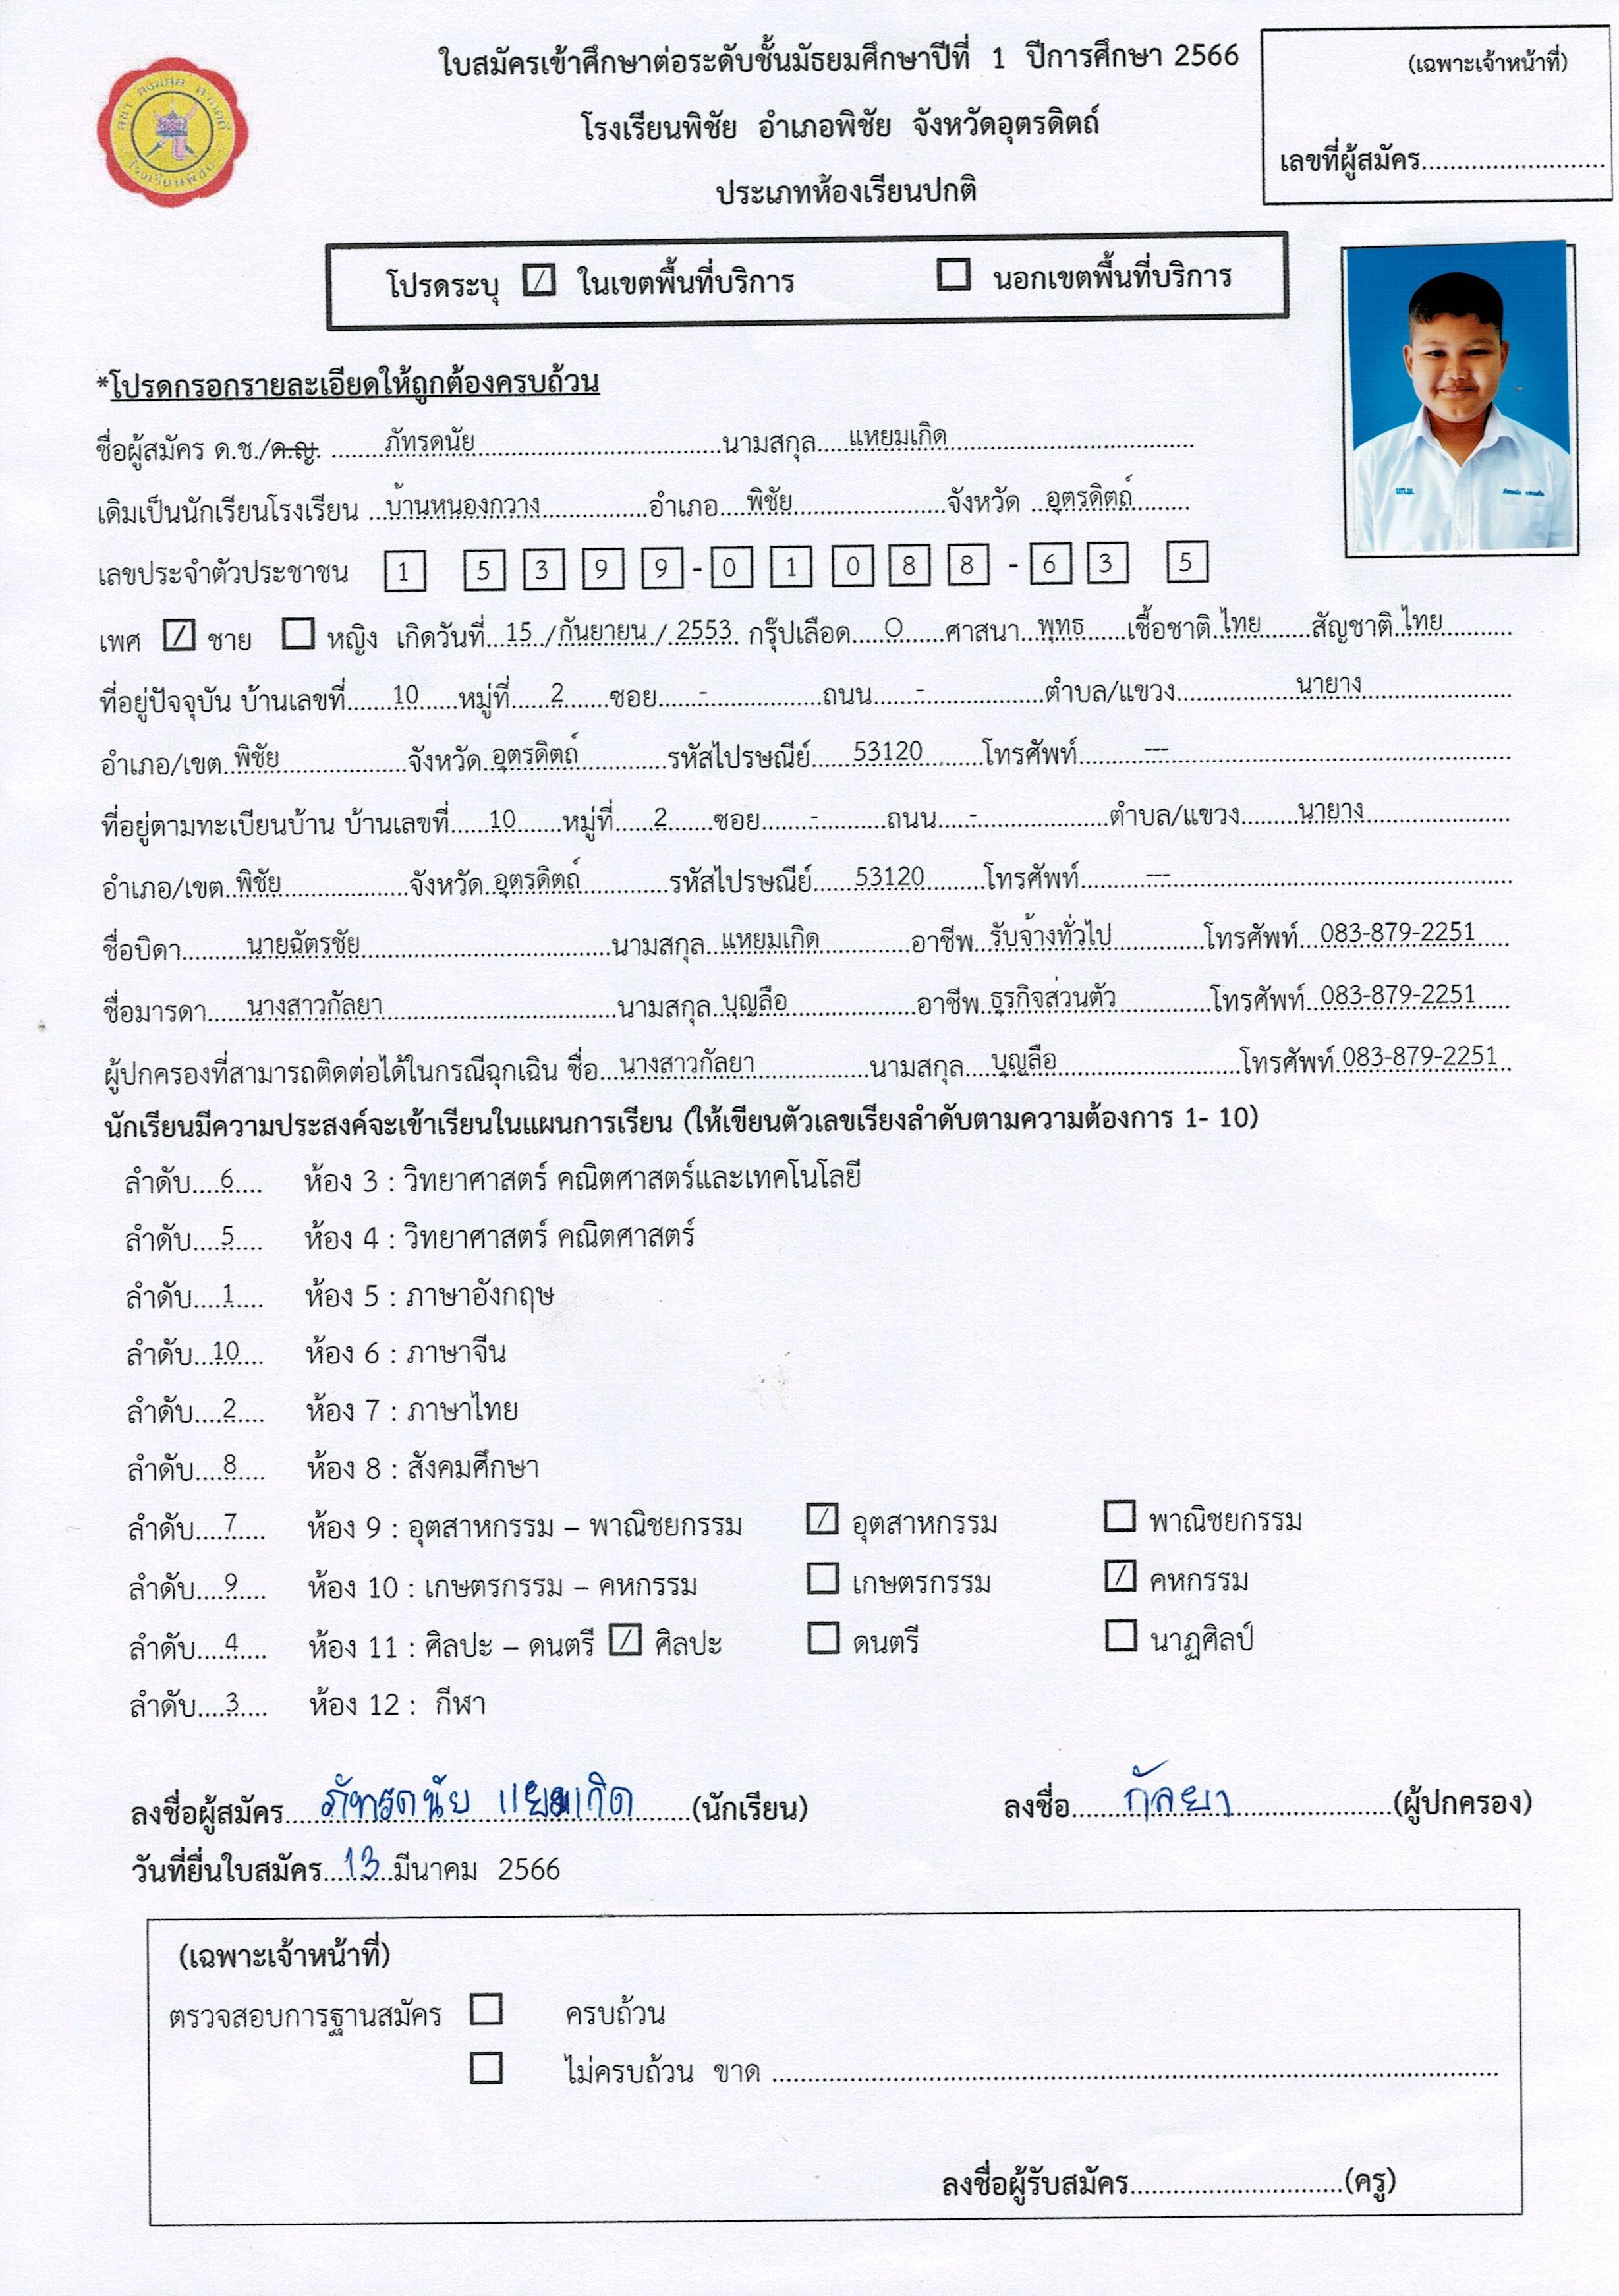 ใบสมัครเข้าศึกษาต่อระดับชั้นมัธยมศึกษาปีที่ 1 ปีการศึกษา 2566
(เฉพาะเจ้าหน้าที่)
โรงเรียนพิชัย อำเภอพิชัย จังหวัดอุตรดิตถ์
เลขที่ผู้สมัคร..........................
ประเภทห้องเรียนปกติ
โปรดระบุ ☑ ในเขตพื้นที่บริการ ☐ นอกเขตพื้นที่บริการ
*โปรดกรอกรายละเอียดให้ถูกต้องครบถ้วน
ชื่อผู้สมัคร ด.ช./ด.ญ. ภัทรดนัย นามสกุล แหยมเกิด
เดิมเป็นนักเรียนโรงเรียน บ้านหนองกวาง อำเภอ พิชัย จังหวัด อุตรดิตถ์
เลขประจำตัวประชาชน 1 5 3 9 9 - 0 1 0 8 8 - 6 3 5
เพศ ☑ ชาย ☐ หญิง เกิดวันที่ 15 / กันยายน / 2553 กรุ๊ปเลือด O ศาสนา พุทธ เชื้อชาติ ไทย สัญชาติ ไทย
ที่อยู่ปัจจุบัน บ้านเลขที่ 10 หมู่ที่ 2 ซอย - ถนน - ตำบล/แขวง นายาง
อำเภอ/เขต พิชัย จังหวัด อุตรดิตถ์ รหัสไปรษณีย์ 53120 โทรศัพท์ ---
ที่อยู่ตามทะเบียนบ้าน บ้านเลขที่ 10 หมู่ที่ 2 ซอย - ถนน - ตำบล/แขวง นายาง
อำเภอ/เขต พิชัย จังหวัด อุตรดิตถ์ รหัสไปรษณีย์ 53120 โทรศัพท์ ---
ชื่อบิดา นายฉัตรชัย นามสกุล แหยมเกิด อาชีพ รับจ้างทั่วไป โทรศัพท์ 083-879-2251
ชื่อมารดา นางสาวกัลยา นามสกุล บุญลือ อาชีพ ธุรกิจส่วนตัว โทรศัพท์ 083-879-2251
ผู้ปกครองที่สามารถติดต่อได้ในกรณีฉุกเฉิน ชื่อ นางสาวกัลยา นามสกุล บุญลือ โทรศัพท์ 083-879-2251
นักเรียนมีความประสงค์จะเข้าเรียนในแผนการเรียน (ให้เขียนตัวเลขเรียงลำดับตามความต้องการ 1- 10)
ลำดับ 6 ห้อง 3 : วิทยาศาสตร์ คณิตศาสตร์และเทคโนโลยี
ลำดับ 5 ห้อง 4 : วิทยาศาสตร์ คณิตศาสตร์
ลำดับ 1 ห้อง 5 : ภาษาอังกฤษ
ลำดับ 10 ห้อง 6 : ภาษาจีน
ลำดับ 2 ห้อง 7 : ภาษาไทย
ลำดับ 8 ห้อง 8 : สังคมศึกษา
ลำดับ 7 ห้อง 9 : อุตสาหกรรม – พาณิชยกรรม ☑ อุตสาหกรรม ☐ พาณิชยกรรม
ลำดับ 9 ห้อง 10 : เกษตรกรรม – คหกรรม ☐ เกษตรกรรม ☑ คหกรรม
ลำดับ 4 ห้อง 11 : ศิลปะ – ดนตรี ☑ ศิลปะ ☐ ดนตรี ☐ นาฏศิลป์
ลำดับ 3 ห้อง 12 : กีฬา
ลงชื่อผู้สมัคร ภัทรดนัย แหยมเกิด (นักเรียน) ลงชื่อ กัลยา (ผู้ปกครอง)
วันที่ยื่นใบสมัคร 13 มีนาคม 2566
(เฉพาะเจ้าหน้าที่)
ตรวจสอบการฐานสมัคร ☐ ครบถ้วน
☐ ไม่ครบถ้วน ขาด ..........................
ลงชื่อผู้รับสมัคร..............................(ครู)